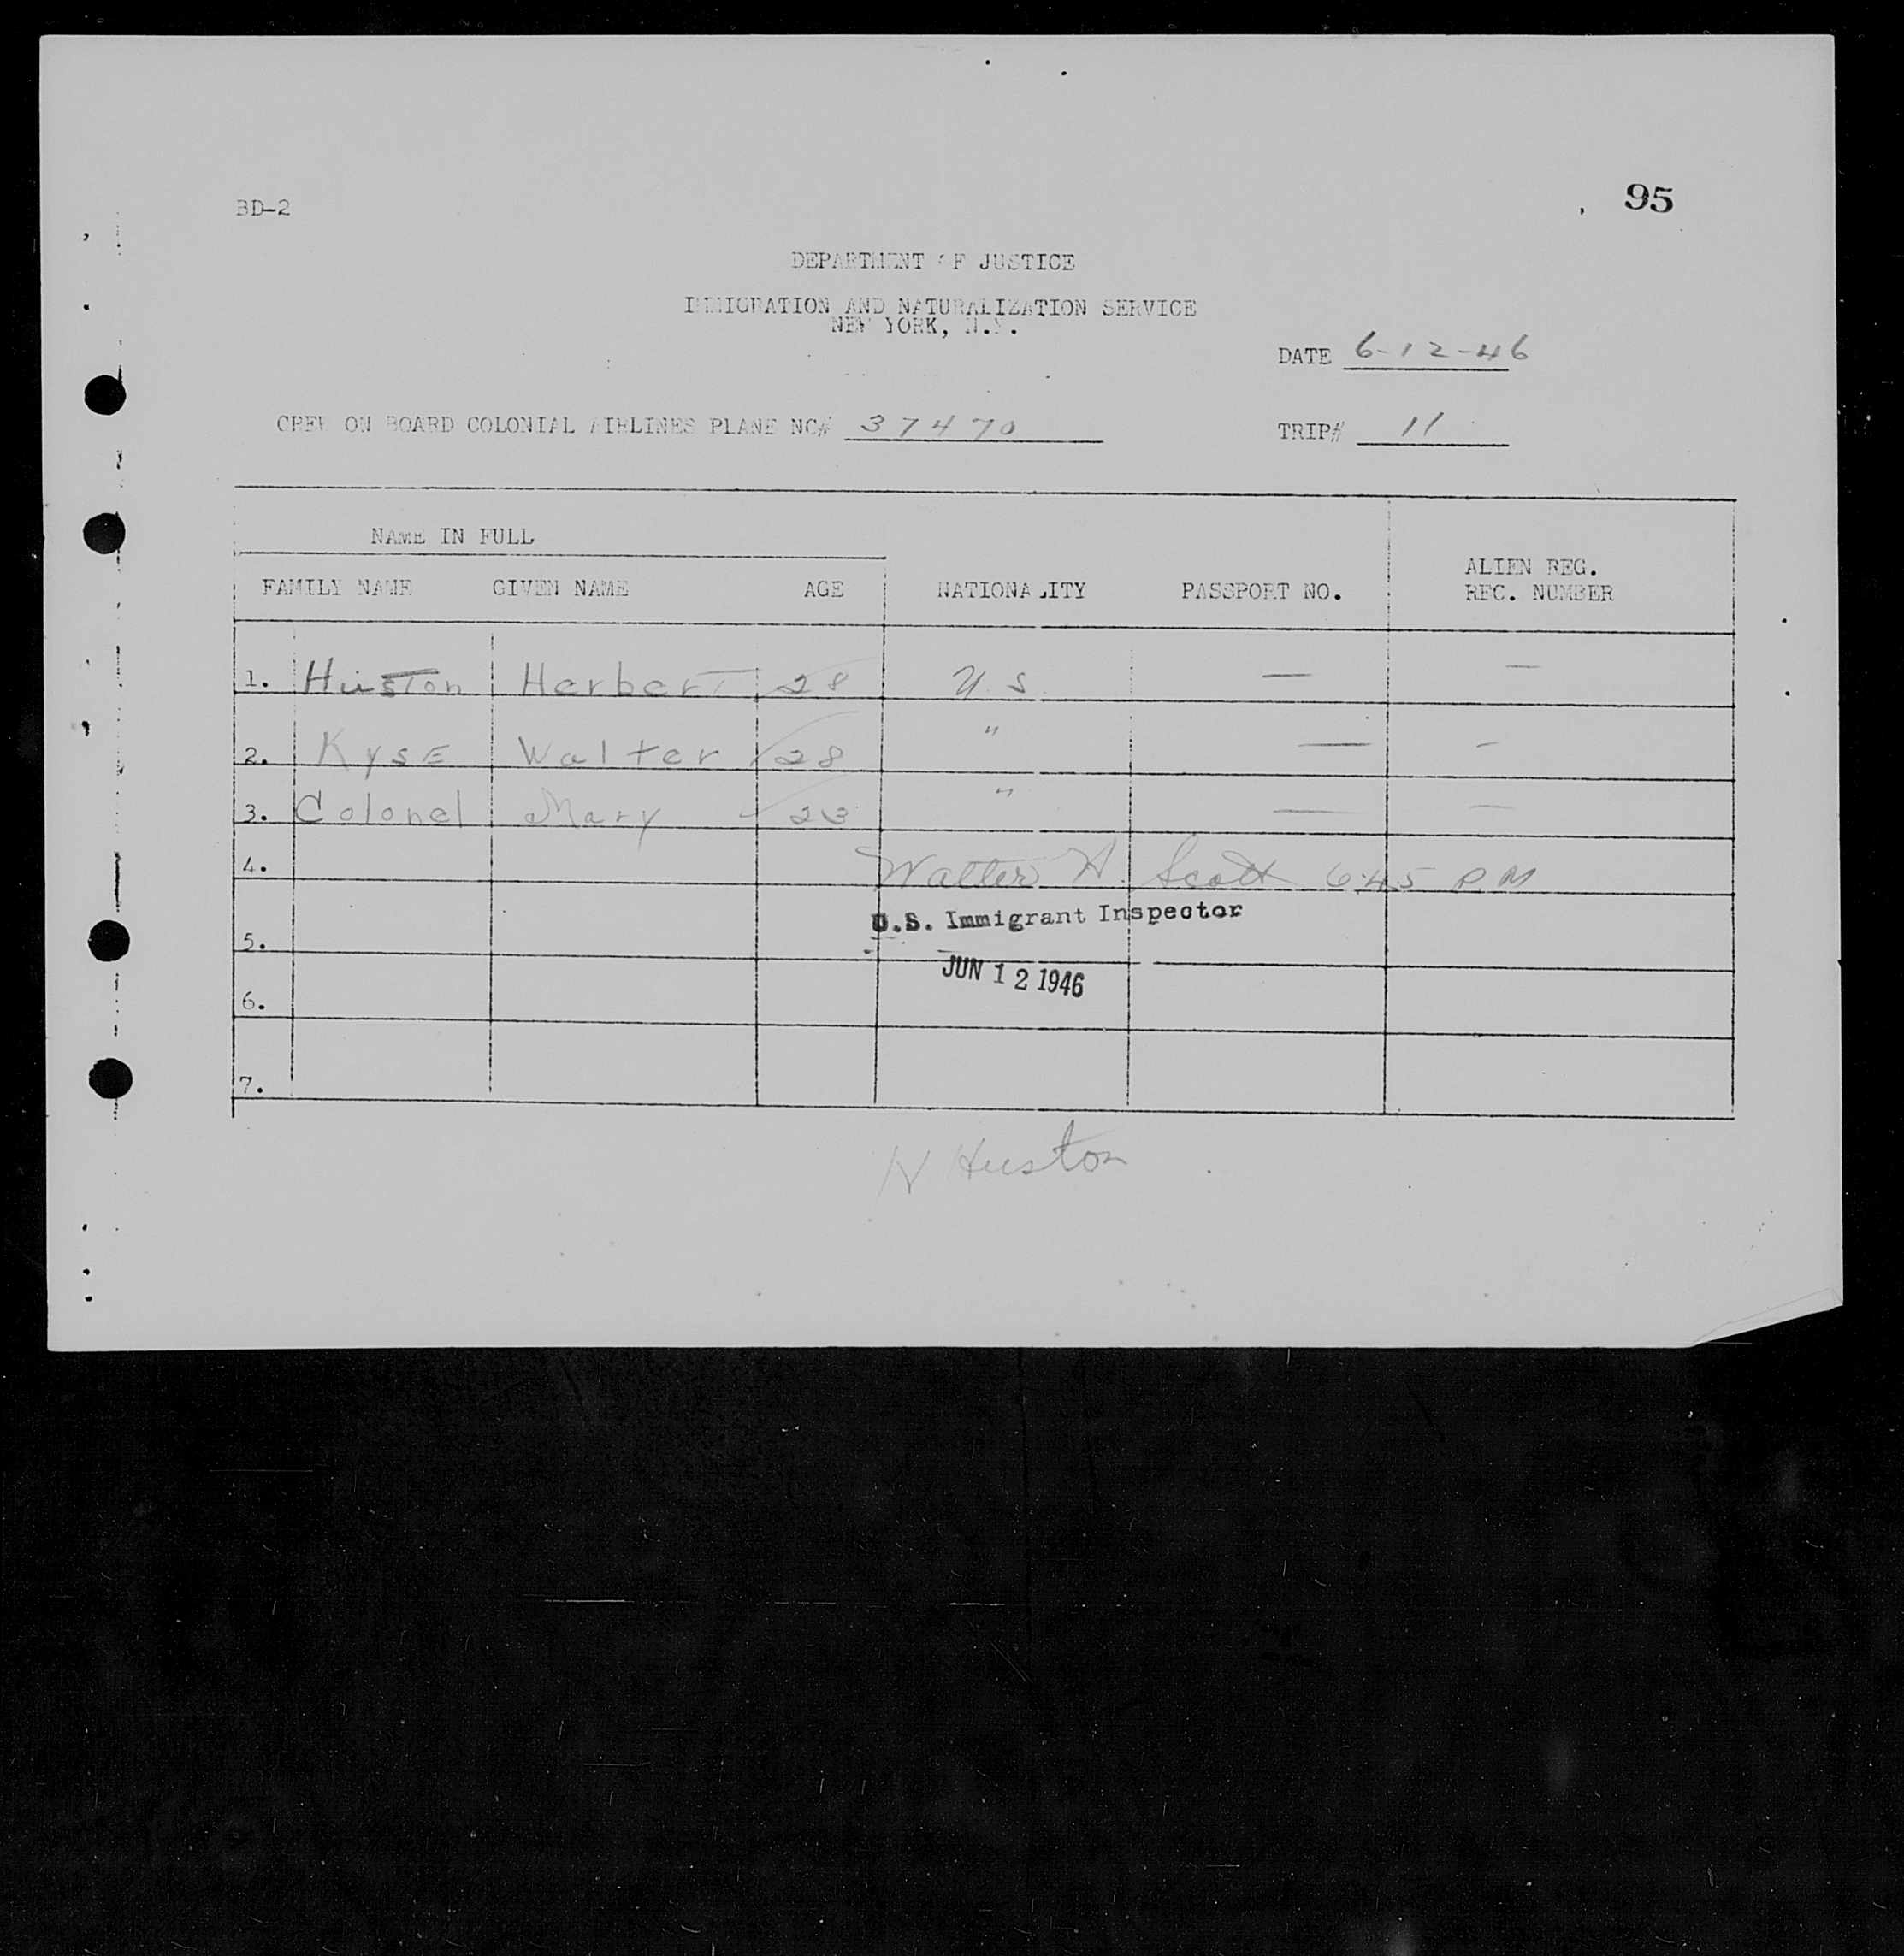 95
BD-2
DEPARTMENT OF JUSTICE
IMMIGRATION AND NATURALIZATION SERVICE
NEW YORK, N.Y.
DATE 6-12-46
CREW ON BOARD COLONIAL AIRLINES PLANE NC# 37470 TRIP# 11
NAME IN FULL
FAMILY NAME GIVEN NAME AGE NATIONALITY PASSPORT NO. ALIEN REG. REC. NUMBER
1. Huston Herbert 28 U.S. — —
2. Kyse Walter 28 " — —
3. Colonel Mary 23 " — —
4. Walter H. Scott 6:45 PM
U.S. Immigrant Inspector
5.
JUN 12 1946
6.
7.
H Huston